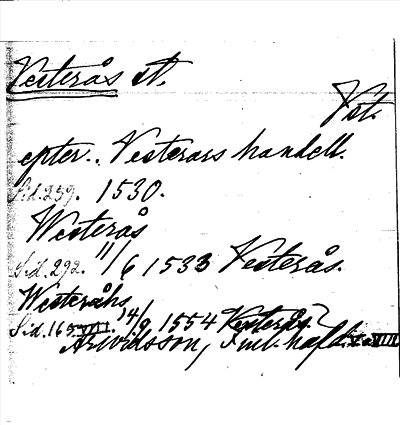 Vesterås st.
Vst.
efter. Vesterårs handell.
Sid. 259. 1530.
Westerås
Sid. 292. 11/6 1533 Vesterås.
Westeråhs
Sid. 165 VIII. 14/9 1554 Vesterås.
Arwidsson, Finl. häfd. V. VIII